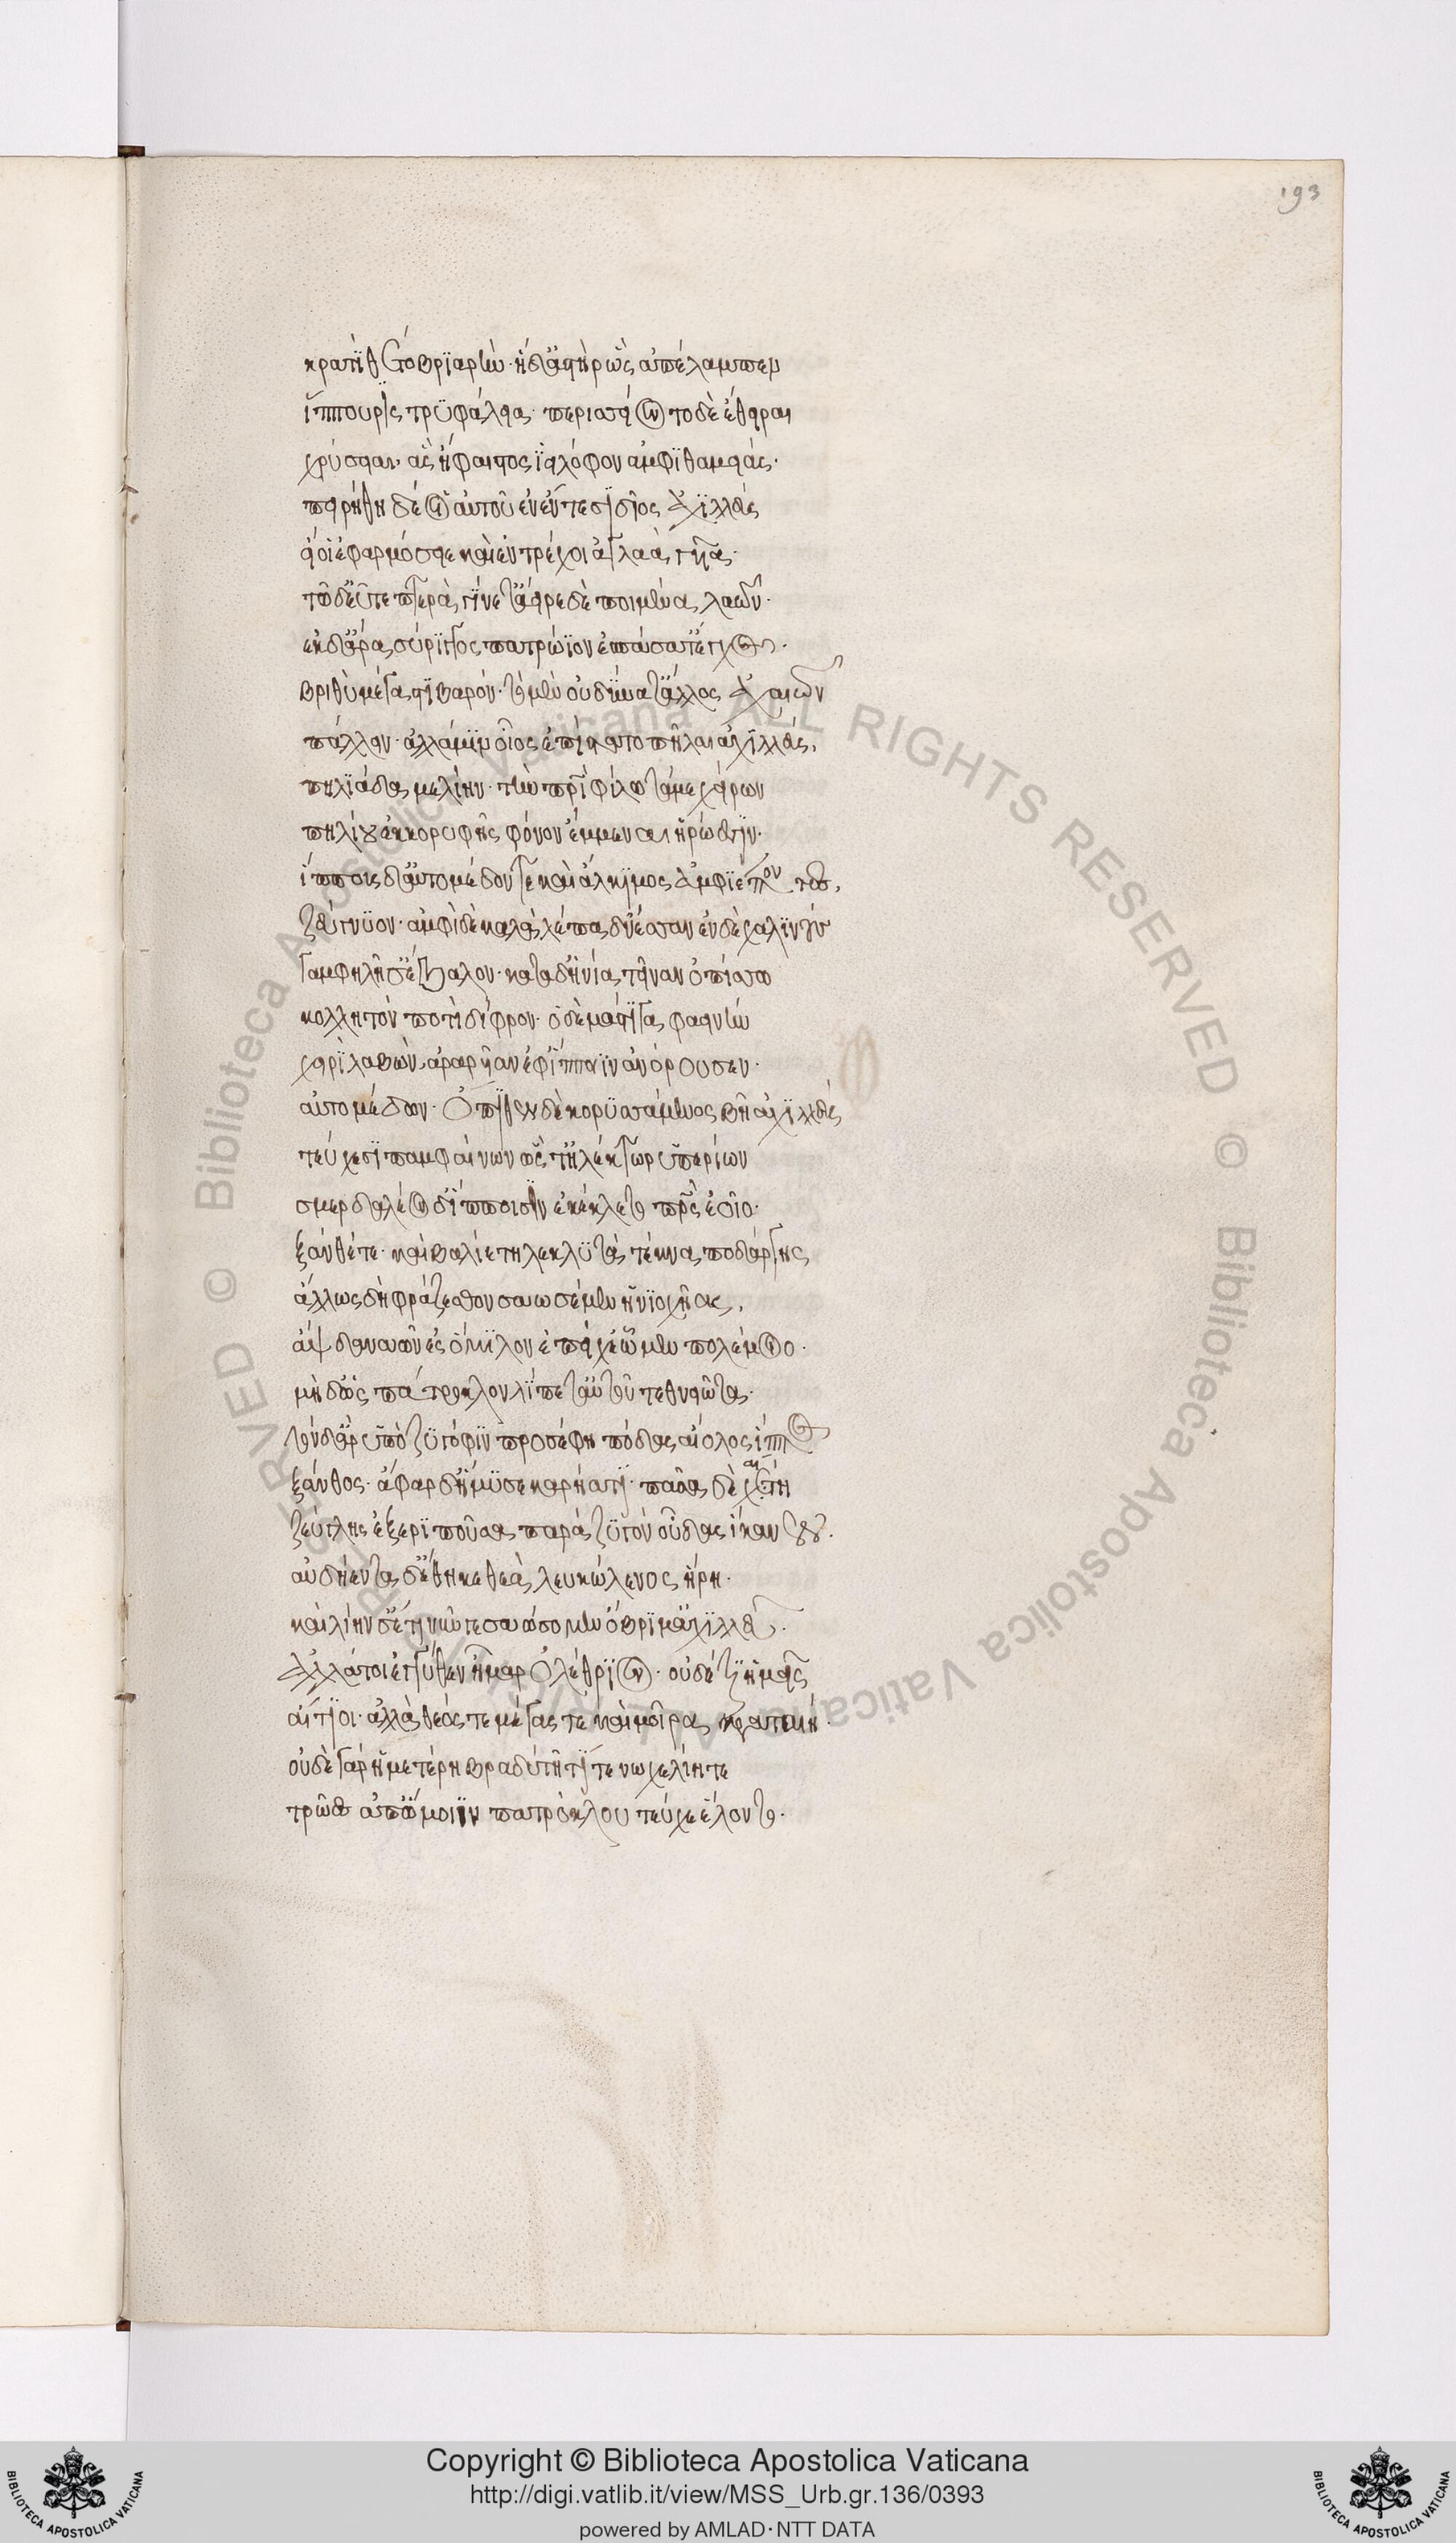 193
κρατὶ θέτο βριαρήν· ἡ δ' ἀστὴρ ὣς ἀπέλαμπεν
ἵππουρις τρυφάλεια· περισσείοντο δὲ ἔθειραι
χρύσεαι· ἃς ἥφαιστος ἵει λόφον ἀμφὶ θαμειάς·
πειρήθη δέ οἱ αὐτοῦ ἐν ἔντεσι δῖος ἀχιλλεὺς
εἰ οἷ ἐφαρμόσσειε καὶ ἐντρέχοι ἀγλαὰ γυῖα·
τῷ δ' εὖτε πτερὰ γίνετ' ἄειρε δὲ ποιμένα λαῶν·
ἐκ δ' ἄρα σύριγγος πατρώϊον ἐσπάσατ' ἔγχος·
βριθὺ μέγα στιβαρόν· τὸ μὲν οὐ δύνατ' ἄλλος ἀχαιῶν
πάλλειν· ἀλλά μιν οἶος ἐπίστατο πῆλαι ἀχιλλεύς,
πηλιάδα μελίην· τὴν πατρὶ φίλῳ τάμε χείρων
πηλίου ἐκ κορυφῆς φόνον ἔμμεναι ἡρώεσσιν·
ἵππους δ' αὐτομέδων τε καὶ ἄλκιμος ἀμφιέποντες,
ζεύγνυον· ἀμφὶ δὲ καλὰ λέπαδν' ἕσσαν ἐν δὲ χαλινοὺς
γαμφηλῇς ἔβαλον· κατὰ δ' ἡνία τεῖναν ὀπίσσω
κολλητὸν ποτὶ δίφρον· ὁ δὲ μάστιγα φαεινὴν
χειρὶ λαβὼν ἀραρυῖαν ἐφ' ἵπποιϊν ἀνόρουσεν·
αὐτομέδων· ὄπιθεν δὲ κορυσσάμενος βῆ ἀχιλλεὺς
τεύχεσι παμφαίνων ὥς τ' ἠλέκτωρ ὑπερίων
σμερδαλέον δ' ἵπποισιν ἐκέκλετο πατρὸς ἑοῖο·
ξάνθέ τε· καὶ βαλίε τηλεκλυτὰ τέκνα ποδάργης
ἄλλως δὴ φράζεσθον σαωσέμεν ἡνιοχῆας,
ἂψ δαναῶν ἐς ὅμιλον ἐπεί χ' ἑῶμεν πολέμοιο·
μὴ δ' ὡς πάτροκλον λίπετ' αὐτοῦ τεθνειῶτα·
τὸν δ' ἄρ' ὑπὸ ζυγόφιν προσέφη πόδας αἰόλος ἵππος
ξάνθος· ἄφαρ δ' ἤμυσε καρήατι· πᾶσα δὲ χαίτη
ζεύγλης ἐξεριποῦσα παρὰ ζυγὸν οὖδας ἵκανεν·
αὐδήεντα δ' ἔθηκε θεὰ λευκώλενος ἥρη·
καὶ λίην σ' ἔτι νῦν γε σαώσομεν ὄβριμ' ἀχιλλεῦ·
ἀλλά τοι ἐγγύθεν ἦμαρ ὀλέθριον· οὐδέ τι ἡμεῖς
αἴτιοι· ἀλλὰ θεός τε μέγας τε καὶ μοῖρα κραταιή·
οὐδὲ γὰρ ἡμετέρῃ βραδυτῆτί τε νωχελίῃ τε
τρῶες ἀπ' ὤμοιϊν πατρόκλου τεύχε' ἕλοντο·
Copyright © Biblioteca Apostolica Vaticana
http://digi.vatlib.it/view/MSS_Urb.gr.136/0393
powered by AMLAD·NTT DATA